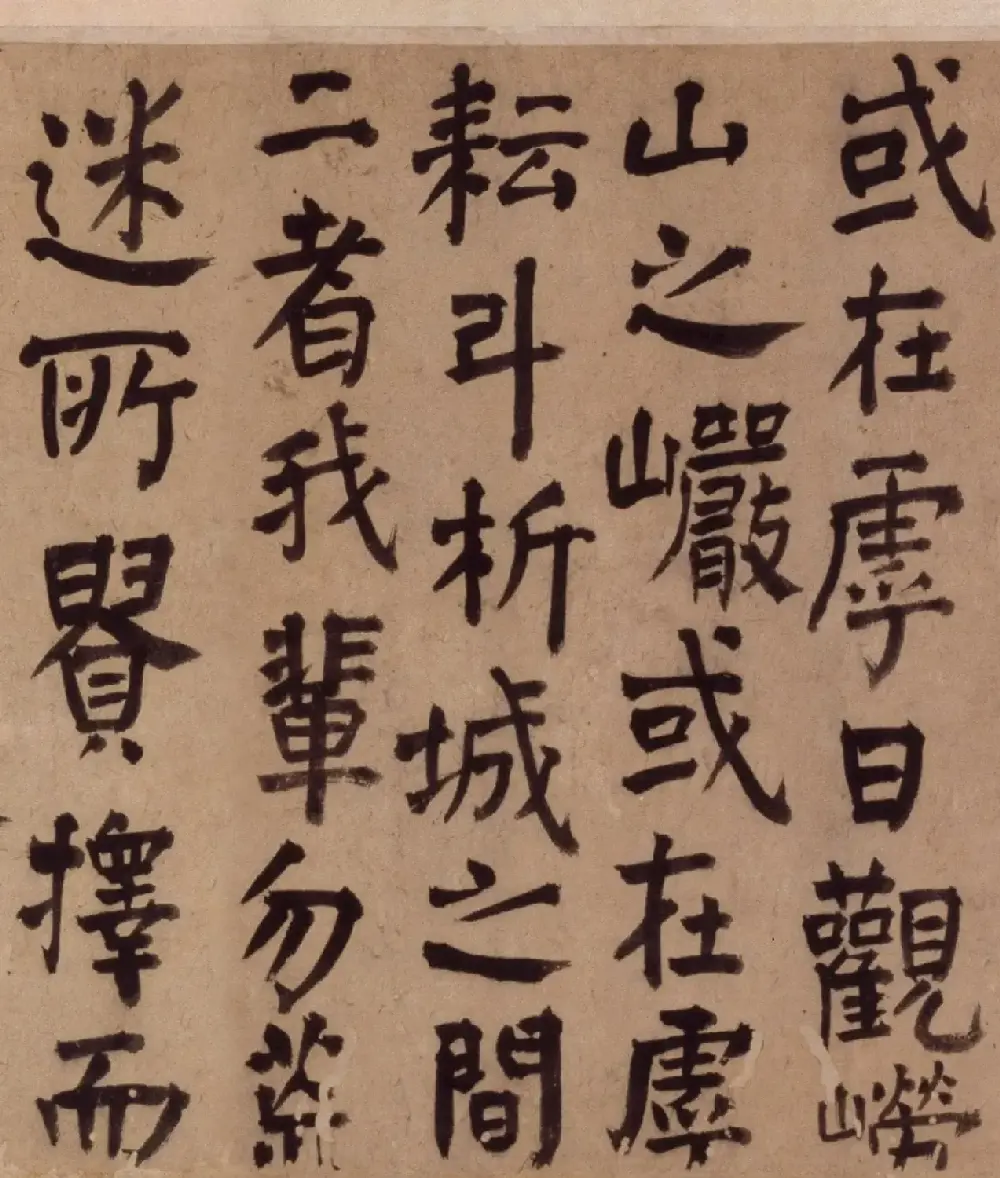 或在虖日觀嶗
山之巖或在虖
耘斗析城之間
二者我輩勿
迷所擇而